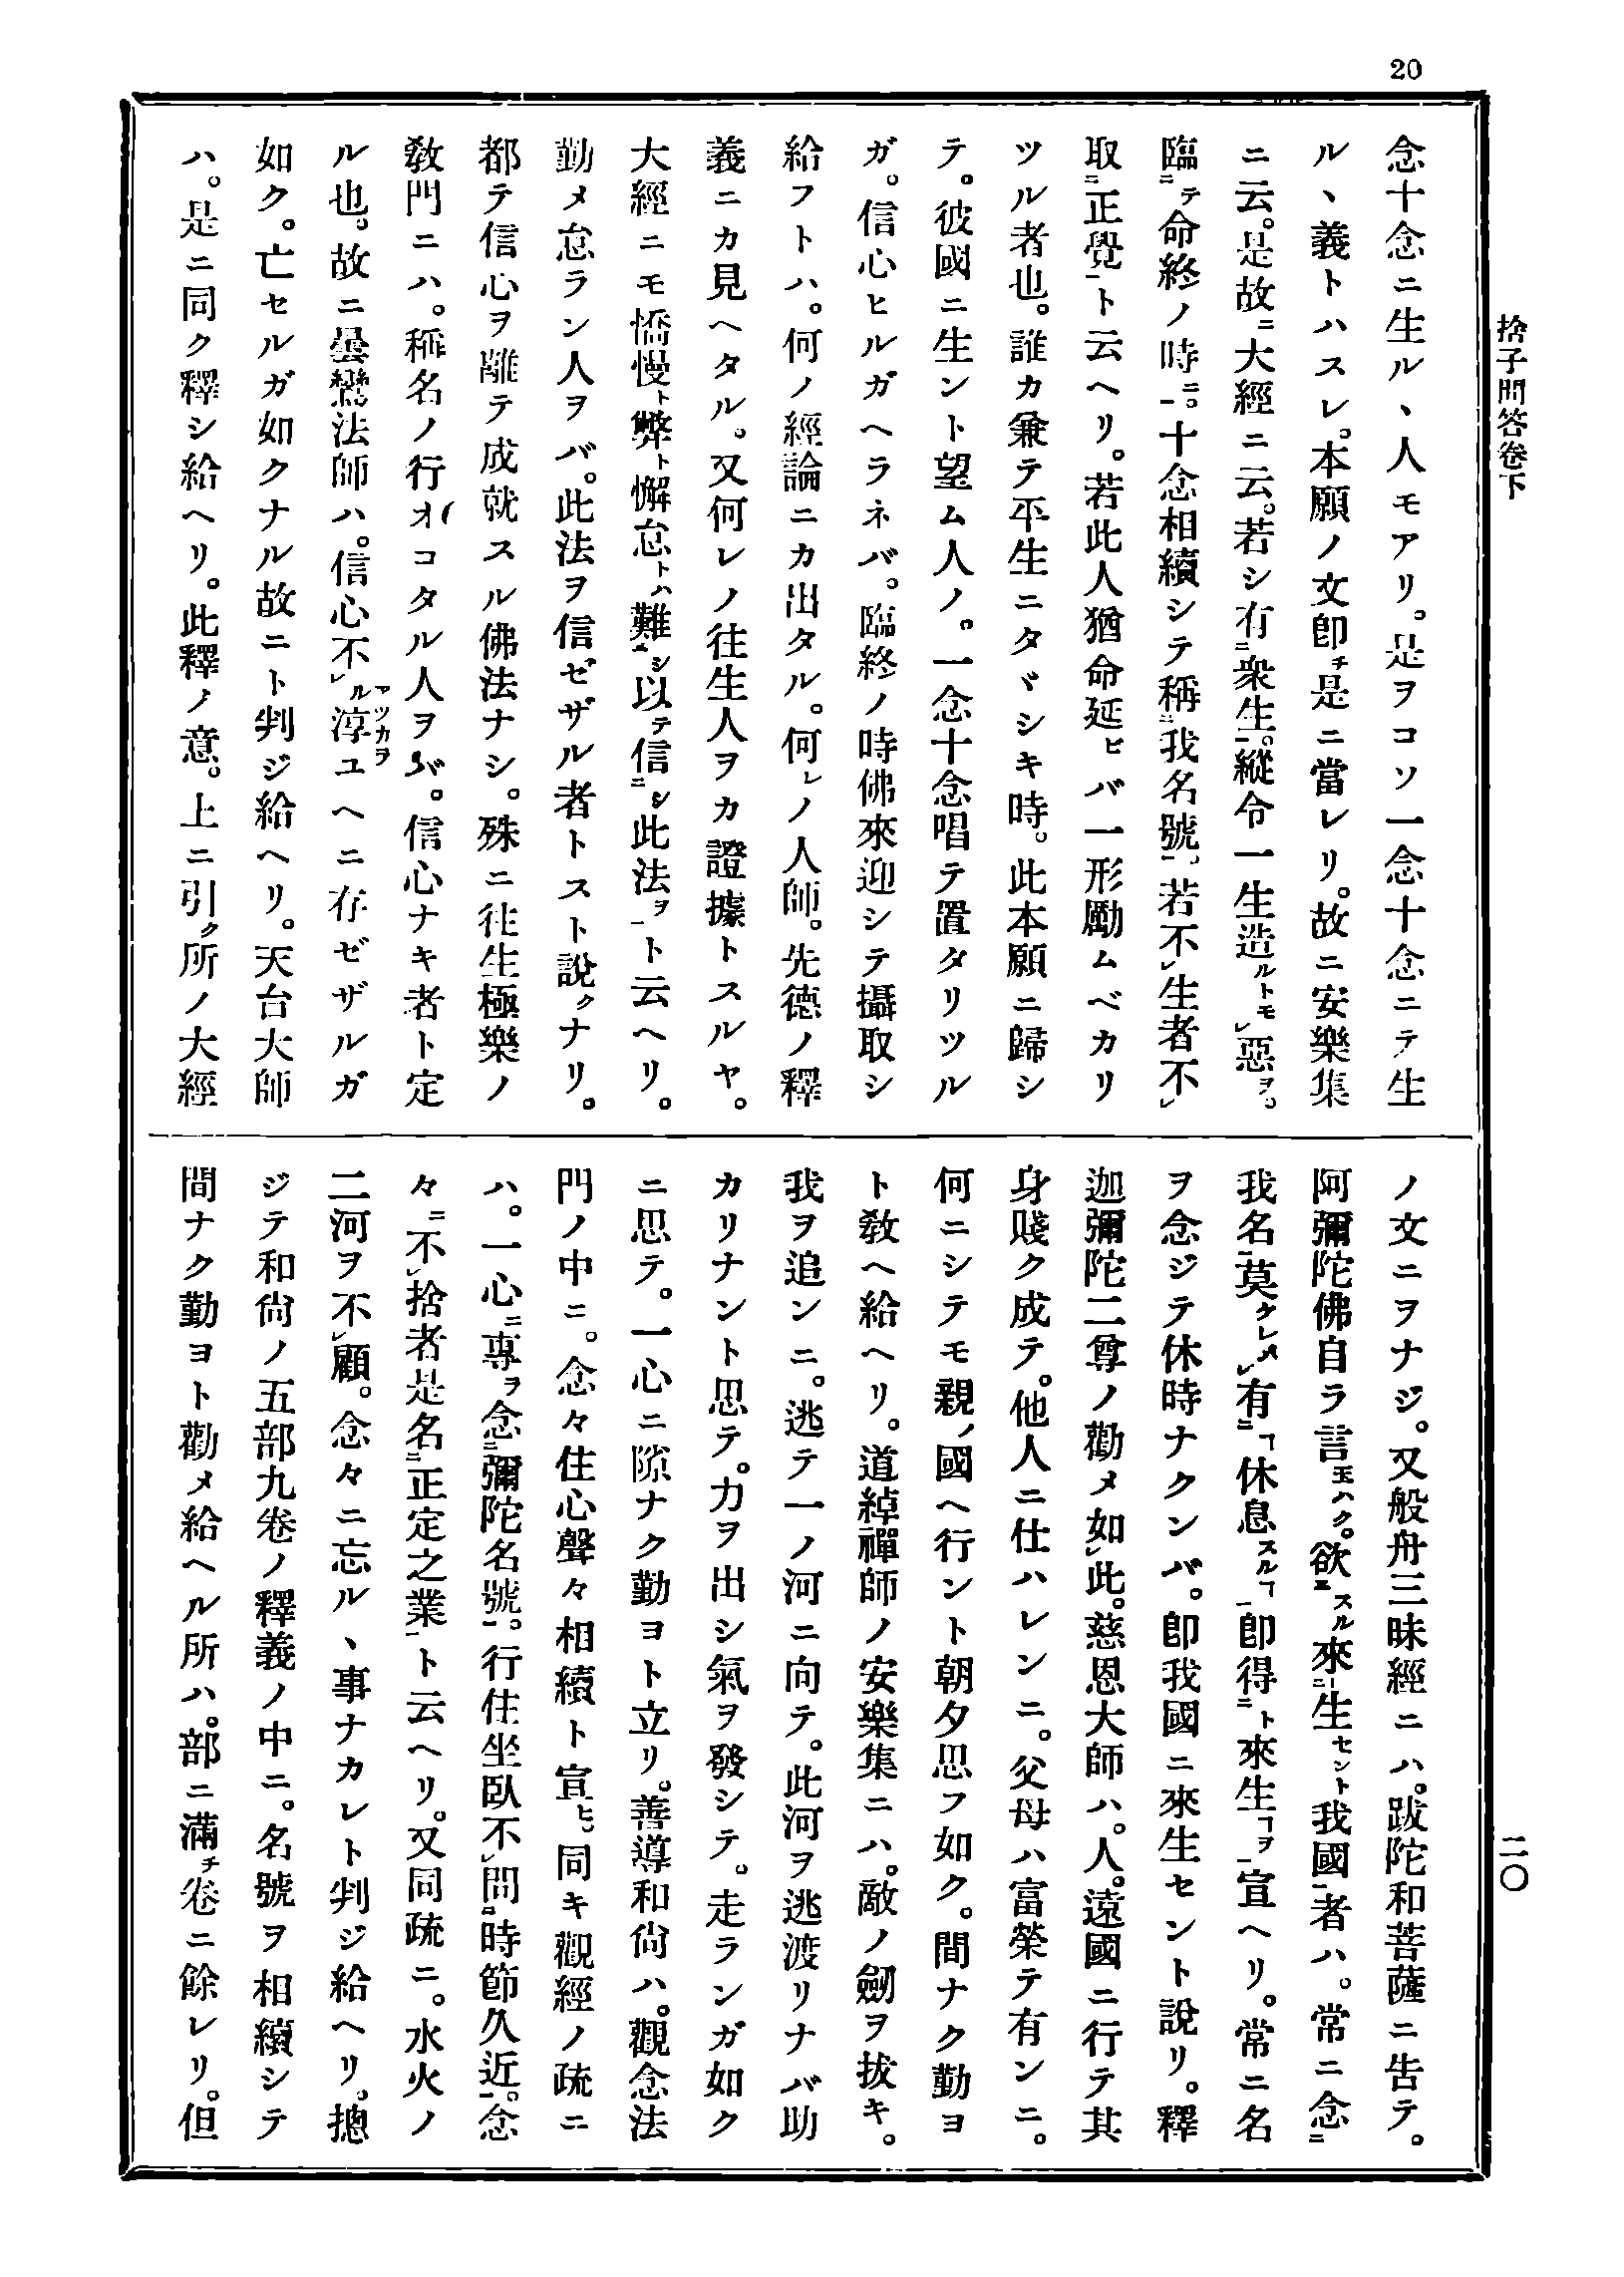 20
捨子問答卷下
二〇
念十念ニ生ルヽ人モアリ。是ヲコソ一念十念ニテ生
ルヽ義トハスレ。本願ノ文卽チ是ニ當レリ。故ニ安樂集
ニ云。是故ニ大經ニ云。若シ有二衆生一。縱令一生造ルトモレ惡ヲ。
臨二テ命終ノ時ニ一。十念相續シテ稱二我名號一、若不レ生者不レ
取二正覺一ト云ヘリ。若此人猶命延ビバ一形勵ムベカリ
ツル者也。誰カ兼テ平生ニタヾシキ時。此本願ニ歸シ
テ。彼國ニ生ント望ム人ノ。一念十念唱テ置タリツル
ガ。信心ヒルガヘラネバ。臨終ノ時佛來迎シテ攝取シ
給フトハ。何ノ經論ニカ出タル。何レノ人師。先德ノ釋
義ニカ見ヘタル。又何レノ往生人ヲカ證據トスルヤ。
大經ニモ憍慢ト弊ト懈怠トハ難シ三以テ信二シ此法ヲ一ト云ヘリ。
勤メ怠ラン人ヲバ。此法ヲ信ゼザル者トスト說クナリ。
都テ信心ヲ離テ成就スル佛法ナシ。殊ニ往生極樂ノ
敎門ニハ。稱名ノ行オコタル人ヲバ。信心ナキ者ト定
ル也。故ニ曇鸞法師ハ。信心不レル淳アツカヲユヘニ存ゼザルガ
如ク。亡セルガ如クナル故ニト判ジ給ヘリ。天台大師
ハ。是ニ同ク釋シ給ヘリ。此釋ノ意。上ニ引ク所ノ大經
ノ文ニヲナジ。又般舟三昧經ニハ。跋陀和菩薩ニ吿テ。
阿彌陀佛自ラ言玉ハク。欲三スル來二生セント我國一者ハ。常ニ念二
我名一莫ケレメレ有二ヿ休息スルヿ一卽得二ト來生ヿヲ一宣ヘリ。常ニ名
ヲ念ジテ休時ナクンバ。卽我國ニ來生セント說リ。釋
迦彌陀二尊ノ勸メ如レ此。慈恩大師ハ。人。遠國ニ行テ其
身賤ク成テ。他人ニ仕ハレンニ。父母ハ富榮テ有ンニ。
何ニシテモ親ノ國ヘ行ント朝夕思フ如ク。間ナク勤ヨ
ト敎ヘ給ヘリ。道綽禪師ノ安樂集ニハ。敵ノ劒ヲ拔キ。
我ヲ追ンニ。逃テ一ノ河ニ向テ。此河ヲ逃渡リナバ助
カリナント思テ。力ヲ出シ氣ヲ發シテ。走ランガ如ク
ニ思テ。一心ニ隙ナク勤ヨト立リ。善導和尙ハ。觀念法
門ノ中ニ。念々住心聲々相續ト宣ヒ。同キ觀經ノ疏ニ
ハ。一心ニ專ヲ念二彌陀名號一。行住坐臥不レ問二時節久近一。念
々ニ不レ捨者是名二正定之業一ト云ヘリ。又同疏ニ。水火ノ
二河ヲ不レ顧。念々ニ忘ルヽ事ナカレト判ジ給ヘリ。摠
ジテ和尙ノ五部九卷ノ釋義ノ中ニ。名號ヲ相續シテ
間ナク勤ヨト勸メ給ヘル所ハ。部ニ滿チ卷ニ餘レリ。但